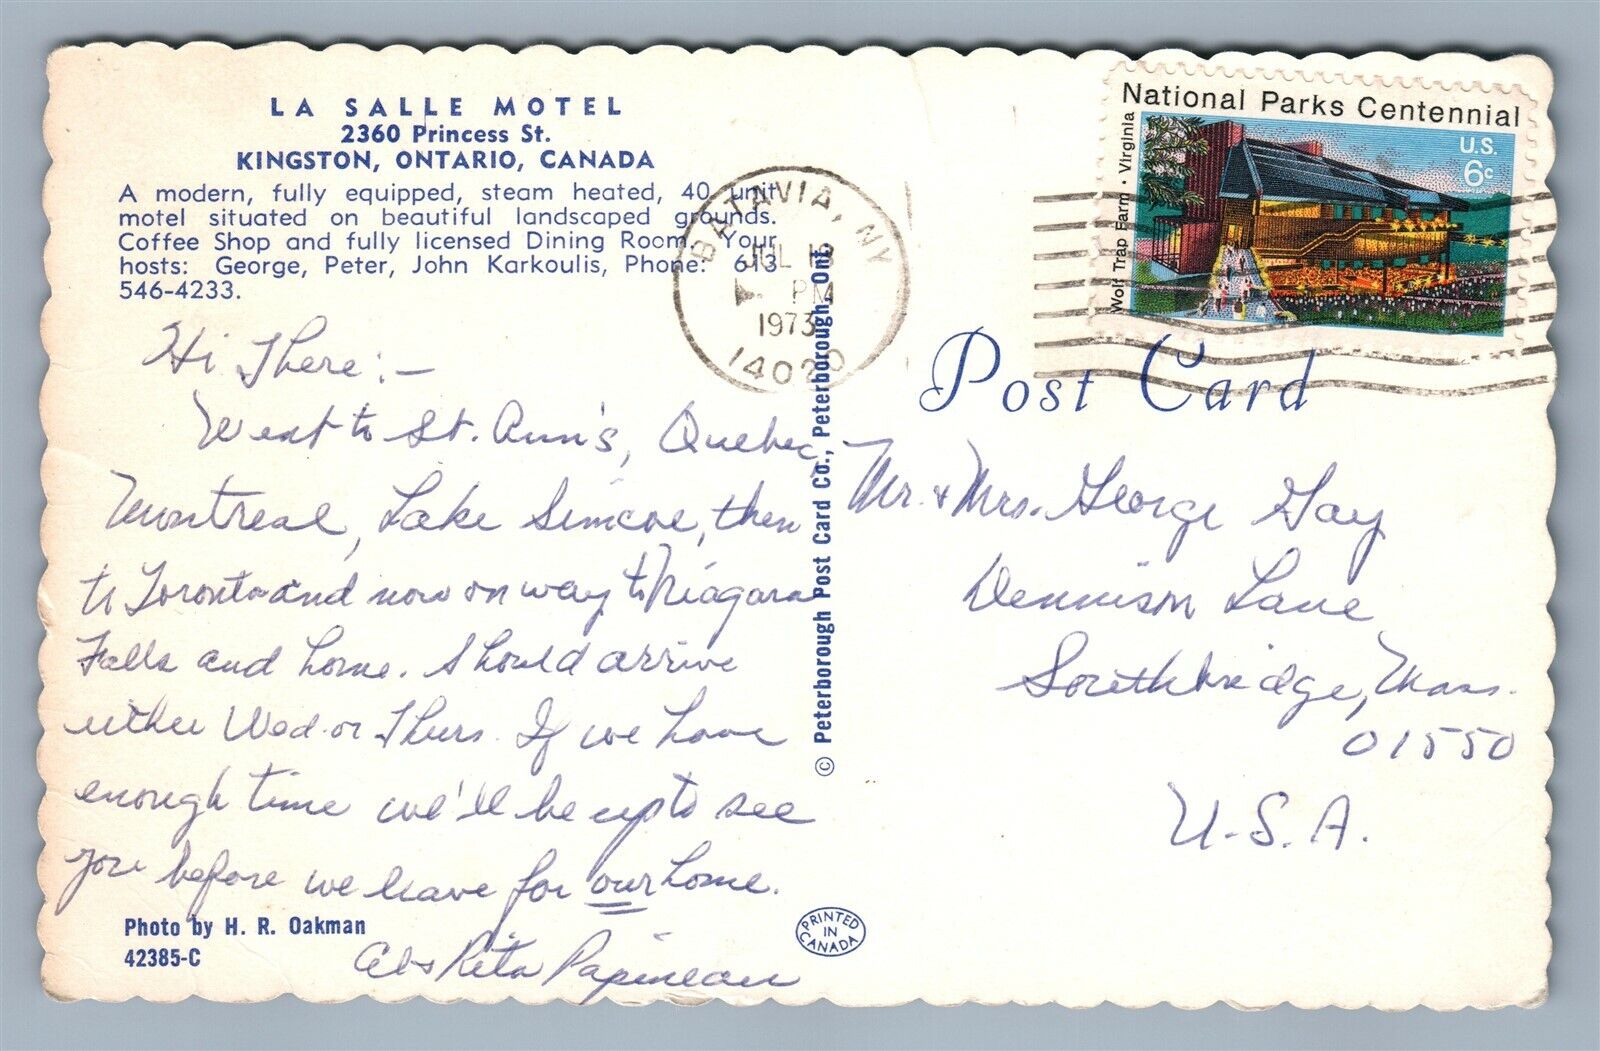 LA SALLE MOTEL
2360 Princess St.
KINGSTON, ONTARIO, CANADA
A modern, fully equipped, steam heated, 40 unit
motel situated on beautiful landscaped grounds.
Coffee Shop and fully licensed Dining Room. Your
hosts: George, Peter, John Karkoulis, Phone: 613-
546-4233.
Hi There:-
Went to St. Ann's, Quebec,
Montreal, Lake Simcoe, then
to Toronto and now on way to Niagara
Falls and home. Should arrive
either Wed. or Thurs. If we have
enough time we'll be up to see
you before we leave for our home.
Al & Rita Papineau
Photo by H. R. Oakman
42385-C
© Peterborough Post Card Co., Peterborough, Ont.
PRINTED
IN
CANADA
BATAVIA, NY
JUL
PM
1973
14020
National Parks Centennial
U.S.
6c
Wolf Trap Farm · Virginia
Post Card
Mr. & Mrs. George Gay
Dennison Lane
Southbridge, Mass.
01550
U.S.A.